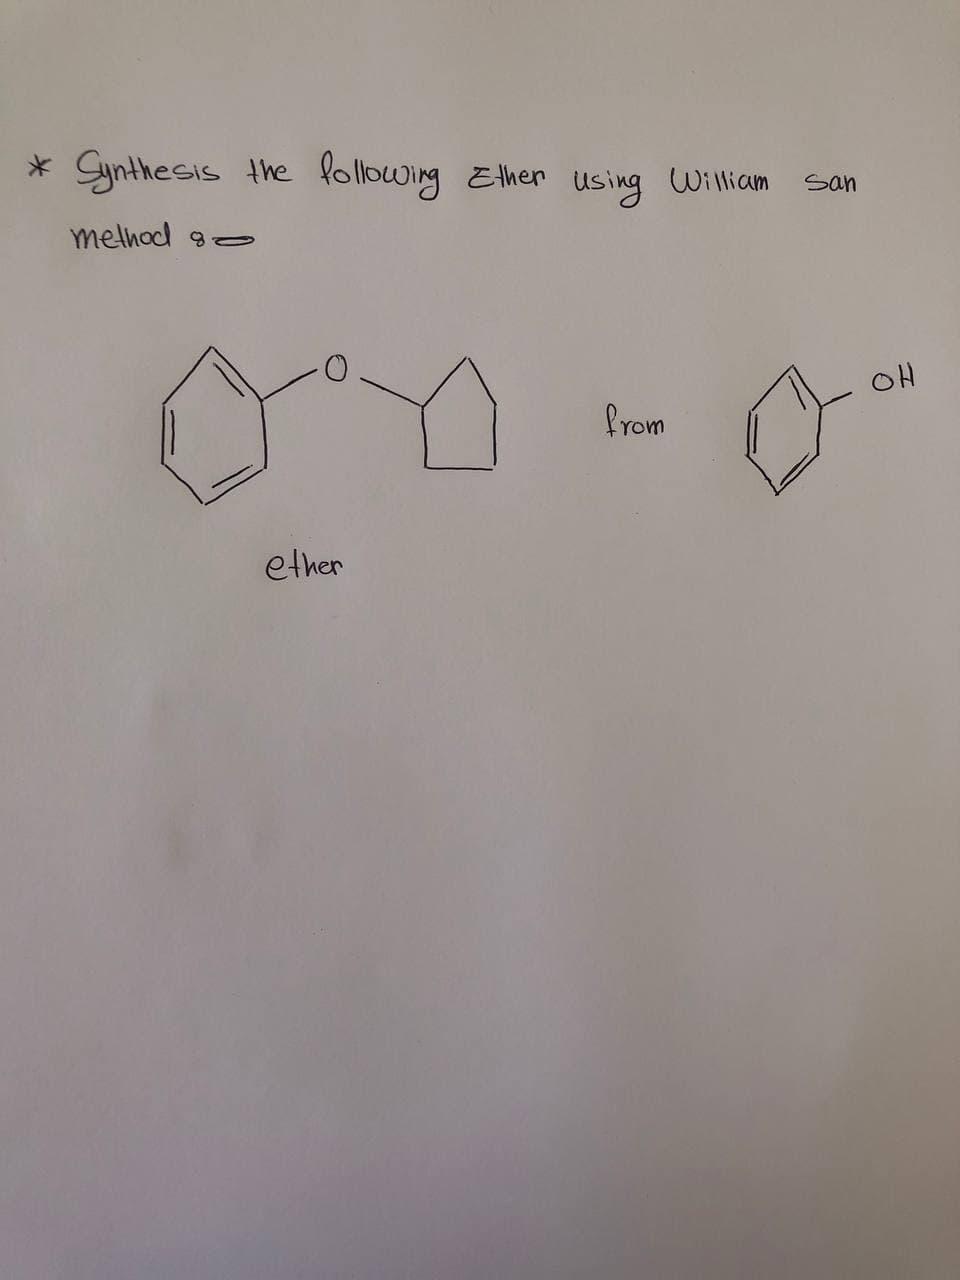 * Synthesis the following Ether using William san
method :-
O
OH
from
ether